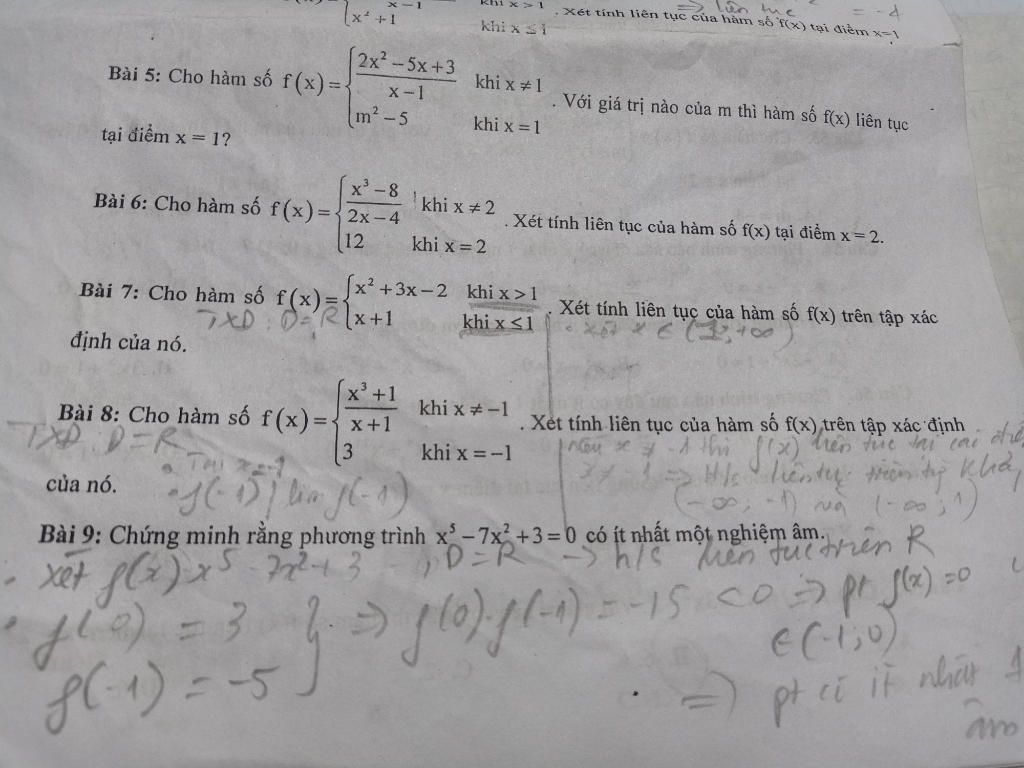 x−1 khi x > 1
x² + 1 khi x ≤ 1 . Xét tính liên tục của hàm số f(x) tại điểm x=1
⇒ liên tục = -1
Bài 5: Cho hàm số f(x) = { (2x² − 5x + 3)/(x − 1) khi x ≠ 1
m² − 5 khi x = 1 . Với giá trị nào của m thì hàm số f(x) liên tục
tại điểm x = 1?
Bài 6: Cho hàm số f(x) = { (x³ − 8)/(2x − 4) khi x ≠ 2
12 khi x = 2 . Xét tính liên tục của hàm số f(x) tại điểm x = 2.
Bài 7: Cho hàm số f(x) = { x² + 3x − 2 khi x > 1
x + 1 khi x ≤ 1 . Xét tính liên tục của hàm số f(x) trên tập xác
TXD : D = R
định của nó.
Bài 8: Cho hàm số f(x) = { (x³ + 1)/(x + 1) khi x ≠ −1
3 khi x = −1 . Xét tính liên tục của hàm số f(x) trên tập xác định
TXD : D = R
• Tại x = -1
nếu x ≠ -1 thì f(x) liên tục tại
≠ -1 ⇒ H/s liên tục trên
của nó.
(-∞, -1) và (-∞; 1)
Bài 9: Chứng minh rằng phương trình x⁵ − 7x² + 3 = 0 có ít nhất một nghiệm âm.
• xét f(x) x⁵ - 7x² + 3 , D = R → h/s liên tục trên R
• f(0) = 3 } ⇒ f(0).f(-1) = -15 < 0 ⇒ pt f(x) = 0
∈ (-1; 0)
f(-1) = -5
⇒ pt có ít nhất 1
âm